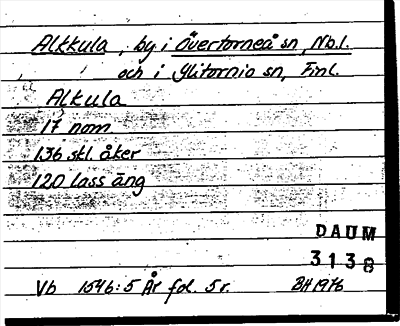 Alkkula, by i Övertorneå sn, Nb.l.
och i Ylitornio sn, Finl.
Alkula
17 nom
136 skl. åker
120 lass äng
DAUM
3138
Vb 1546:5 År fol. 5 r. BH 1976